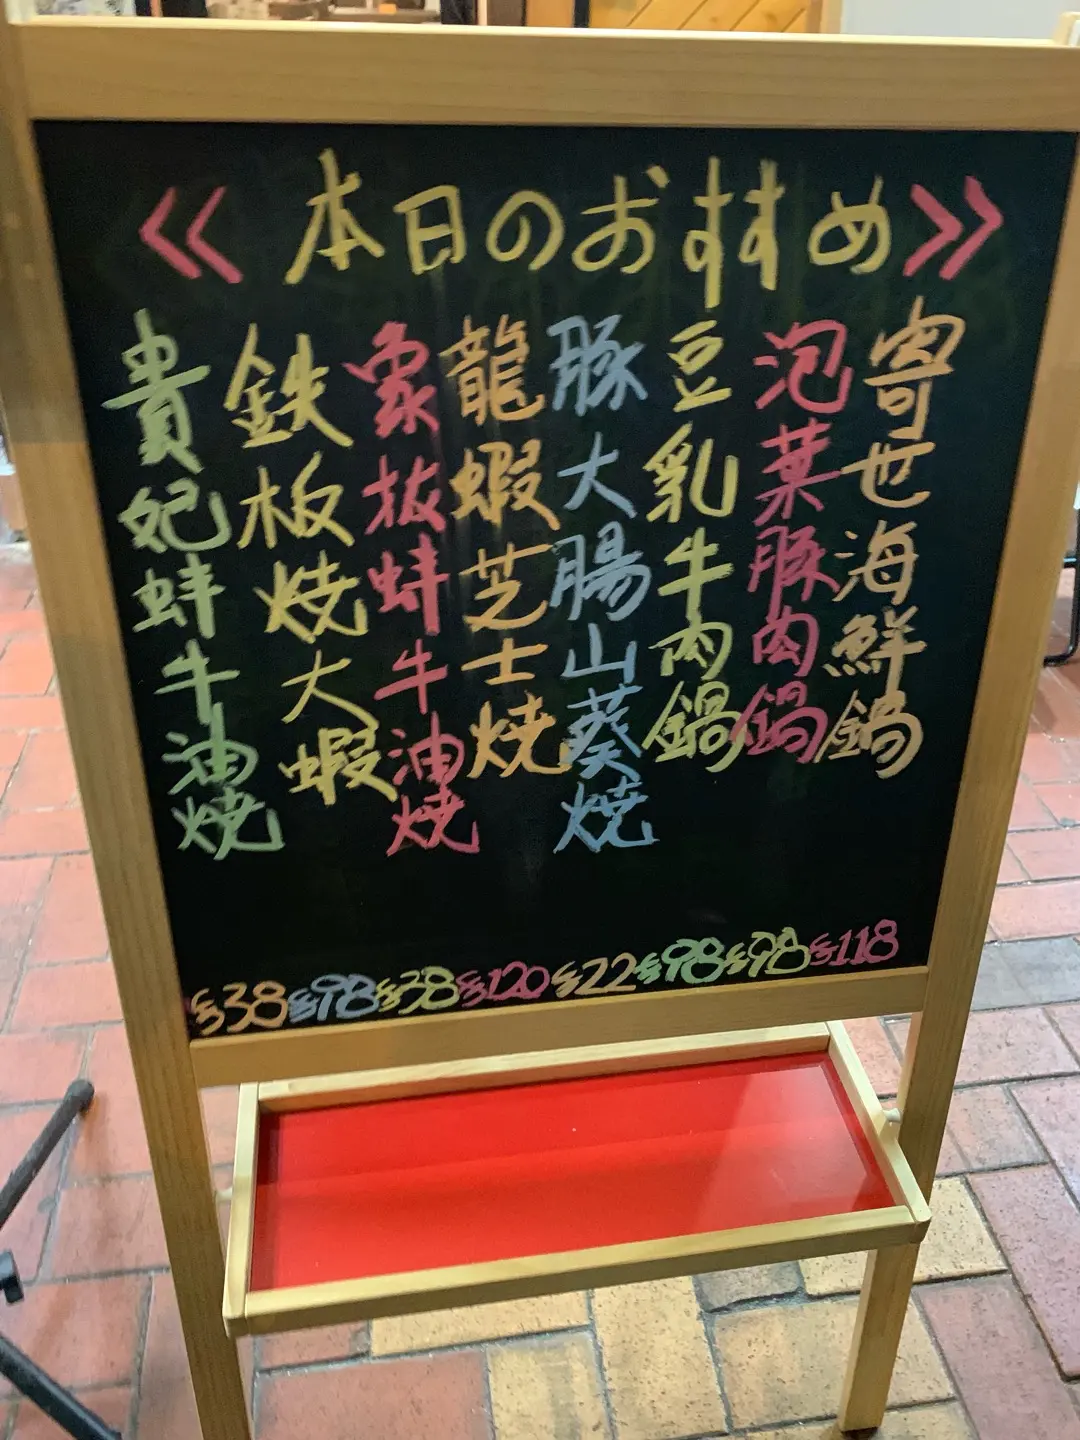 ≪ 本日のおすすめ ≫
寄世海鮮鍋
泡葉豚肉鍋
豆乳牛肉鍋
豚大腸山葵焼
龍蝦芝士焼
象拔蚌牛油焼
鉄板焼大蝦
貴妃蚌牛油焼
$38 $98 $38 $120 $22 $98 $98 $118